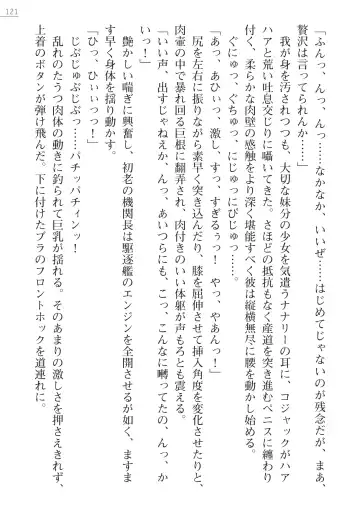 121
「ふんっ、んっ、んっ……なかなか、いいぜ……はじめてじゃないのが残念だが、まあ、
贅沢は言ってられんか……」
我が身を汚されつつも、大切な妹分の少女を気遣うナナリーの耳に、コジャックがハア
ハアと荒い吐息交じりに囁いてきた。さほどの抵抗もなく産道を突き進むペニスに纏わり
付く、柔らかな肉壁の感触をより深く堪能すべく彼は縦横無尽に腰を動かし始める。
ぐにゅっ、ぐちゅっ、にじゅっにぴじゅっ…………。
「あっ、あひぃっ、激し、すっ、すぎるぅっ！　やっ、やあんっ！」
尻を左右に振りながら素早く突き込んだり、膝を屈伸させて挿入角度を変化させたりと、
肉壺の中で暴れ回る巨根に翻弄され、肉付きのいい体躯が声もろとも震える。
「いい声、出すじゃねえか、んっ、あいつらにも、こっ、こんなに囀ってたのか、んっ、か
いっ！」
艶かしい喘ぎに興奮し、初老の機関長は駆逐艦のエンジンを全開させるが如く、ますま
す早く身体を揺り動かす。
「ひっ、ひぃっっ！」
じぷじゅぷじぷっ……パチッパチィンッ！
乱れのたうつ肉体の動きに釣られて巨乳が揺れる。そのあまりの激しさを押さえきれず、
上着のボタンが弾け飛んだ。下に付けたブラのフロントホックを道連れに。